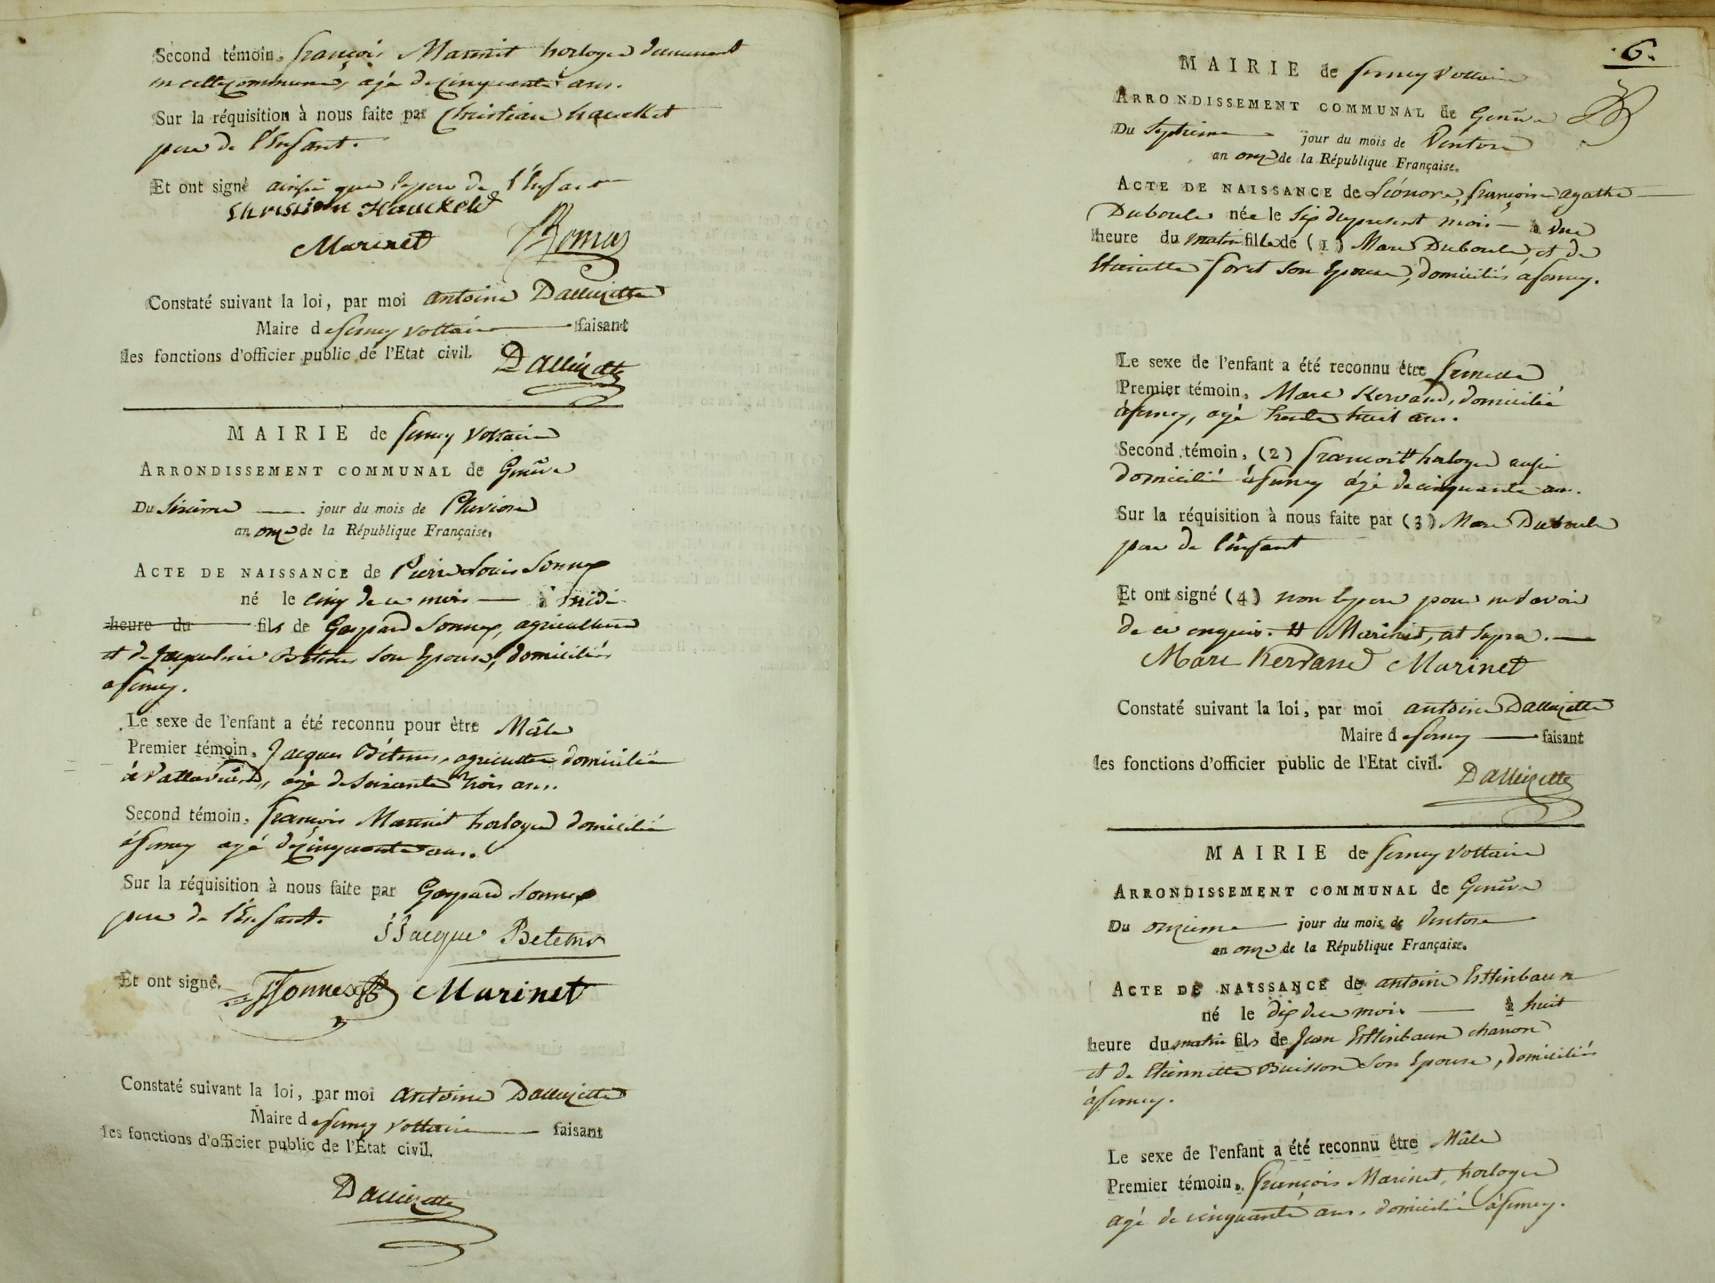 Second témoin, françois Marinet horloger demeurant
en cette commune, agé de cinquante ans.
Sur la réquisition à nous faite par Christian hauckelt
pere de l'Enfant.
Et ont signé ainsi que le pere de l'Enfant
Christian Hauckeld
Marinet Romas
Constaté suivant la loi, par moi antoine Dallizette
Maire de ferney voltaire faisant
les fonctions d'officier public de l'Etat civil. Dallizette
MAIRIE de ferney Voltaire
ARRONDISSEMENT COMMUNAL de Genève
Du Sixieme jour du mois de Pluviose
an onze de la République Française.
ACTE DE NAISSANCE de Pierre Louis Sonnex
né le cinq de ce mois à midi
heure du fils de Gaspard Sonnex, agriculteur
et de Jacqueline Bétems son Epouse, domiciliés
a ferney.
Le sexe de l'enfant a été reconnu pour être Mâle
Premier témoin, Jacques Bétems, agriculteur domicilié
à, agé de Soixante trois ans.
Second témoin, françois Marinet horloger domicilié
à ferney agé de cinquante ans.
Sur la réquisition à nous faite par Gaspard Sonnex
pere de l'Enfant.
Jacque Betems
Et ont signé. Sonnex Marinet
Constaté suivant la loi, par moi antoine Dallizette
Maire de ferney voltaire faisant
les fonctions d'officier public de l'Etat civil.
Dallizette
6.
MAIRIE de ferney Voltaire
ARRONDISSEMENT COMMUNAL de Genève
Du Septieme jour du mois de Ventose
an onze de la République Française.
ACTE DE NAISSANCE de Léonore, françoise agathe
Duboule née le Six du present mois à une
heure du matin fille de (1) Marc Duboule, et de
Etiennette foret son Epouse, domiciliés à ferney.
Le sexe de l'enfant a été reconnu être femelle
Premier témoin, Marc Kervand, domicilié
à ferney, agé trente huit ans.
Second témoin, (2) francois # horloger aussi
domicilié à ferney agé de cinquante ans.
Sur la réquisition à nous faite par (3) Marc Duboule
pere de l'enfant
Et ont signé (4) non le pere pour ne savoir
de ce enquis. # Marinet, ut supra.
Marc Kervand Marinet
Constaté suivant la loi, par moi antoine Dallizette
Maire de ferney faisant
les fonctions d'officier public de l'Etat civil.
Dallizette
MAIRIE de ferney Voltaire
ARRONDISSEMENT COMMUNAL de Genève
Du onzieme jour du mois de Ventose
an onze de la République Française.
ACTE DE NAISSANCE de antoine Estinbaum
né le dix du mois à huit
heure du matin fils de Jean Estinbaum charron
et de Etiennette Buisson son Epouse, domiciliés
à ferney.
Le sexe de l'enfant a été reconnu être Mâle
Premier témoin, françois Marinet, horloger
agé de cinquante ans, domicilié à ferney.